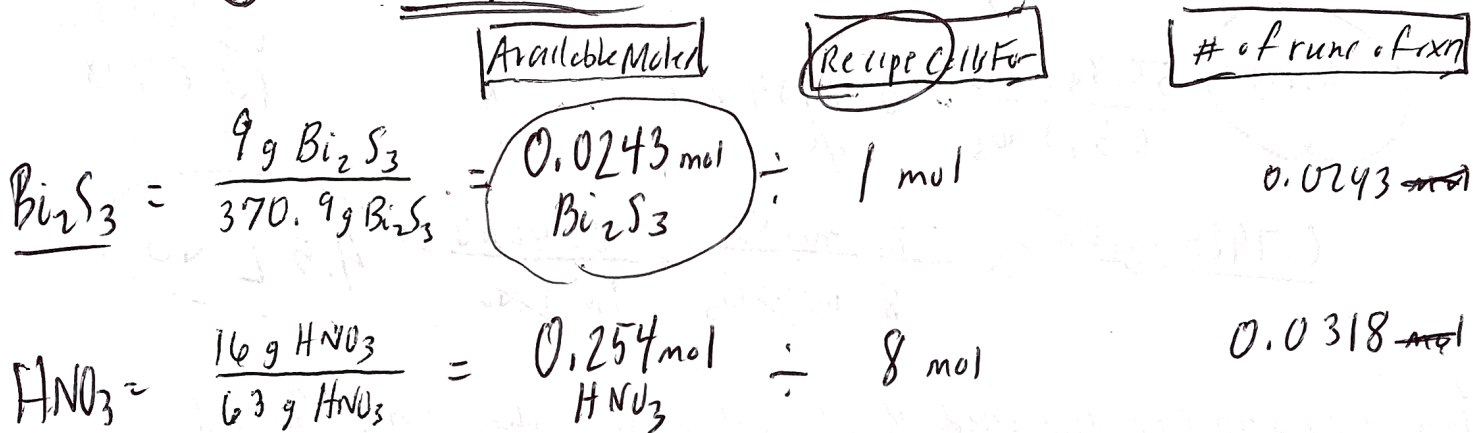 Available Moles Recipe Calls For # of runs of rxn
Bi₂S₃ = 9 g Bi₂S₃ / 370.9 g Bi₂S₃ = 0.0243 mol Bi₂S₃ ÷ 1 mol 0.0243 mol
HNO₃ = 16 g HNO₃ / 63 g HNO₃ = 0.254 mol HNO₃ ÷ 8 mol 0.0318 mol